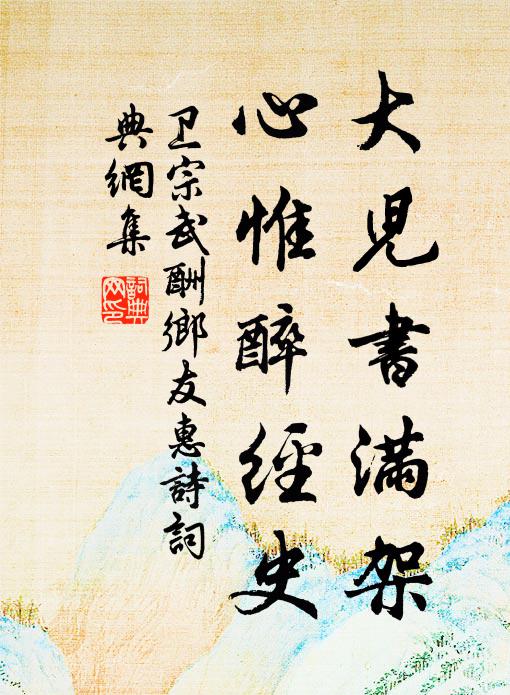 大児書滿架
心惟醉經史
卫宗武酬鄉友惠詩詞
典網集
詞典
网印